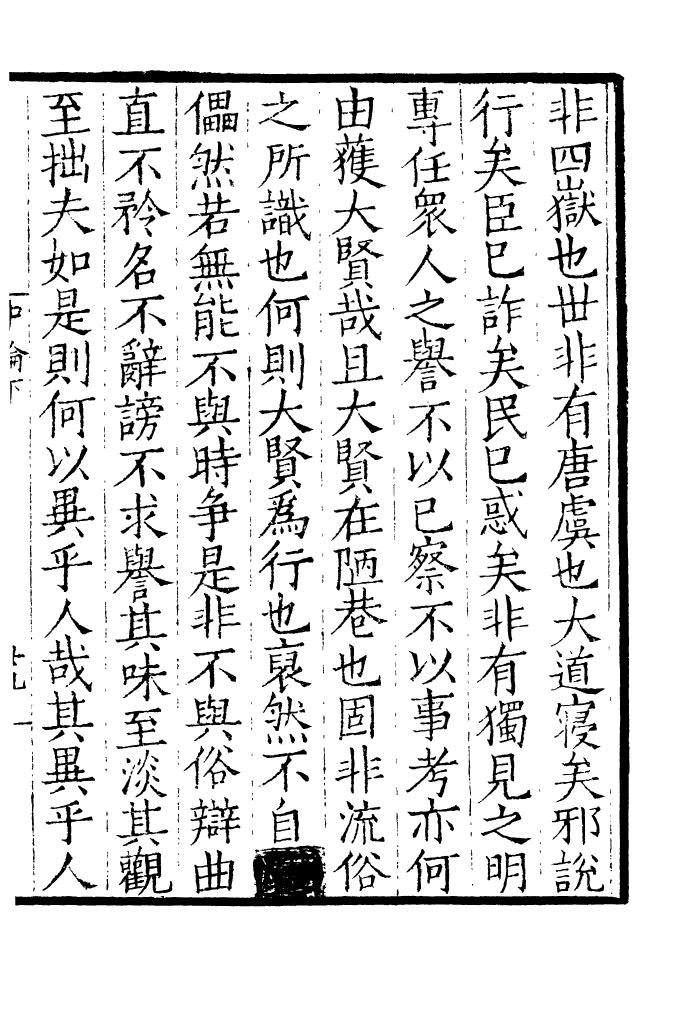 非四嶽也世非有唐虞也大道寢矣邪說
行矣臣已詐矣民已惑矣非有獨見之明
專任衆人之譽不以已察不以事考亦何
由蒦大賢哉且大賢在陋巷也固非流俗
之所識也何則大賢爲行也裒然不自
儡然若無能不與時争是非不與俗辯曲
直不矜名不辭謗不求譽其味至淡其觀
至拙夫如是則何以異乎人哉其異乎人
中論下
十九